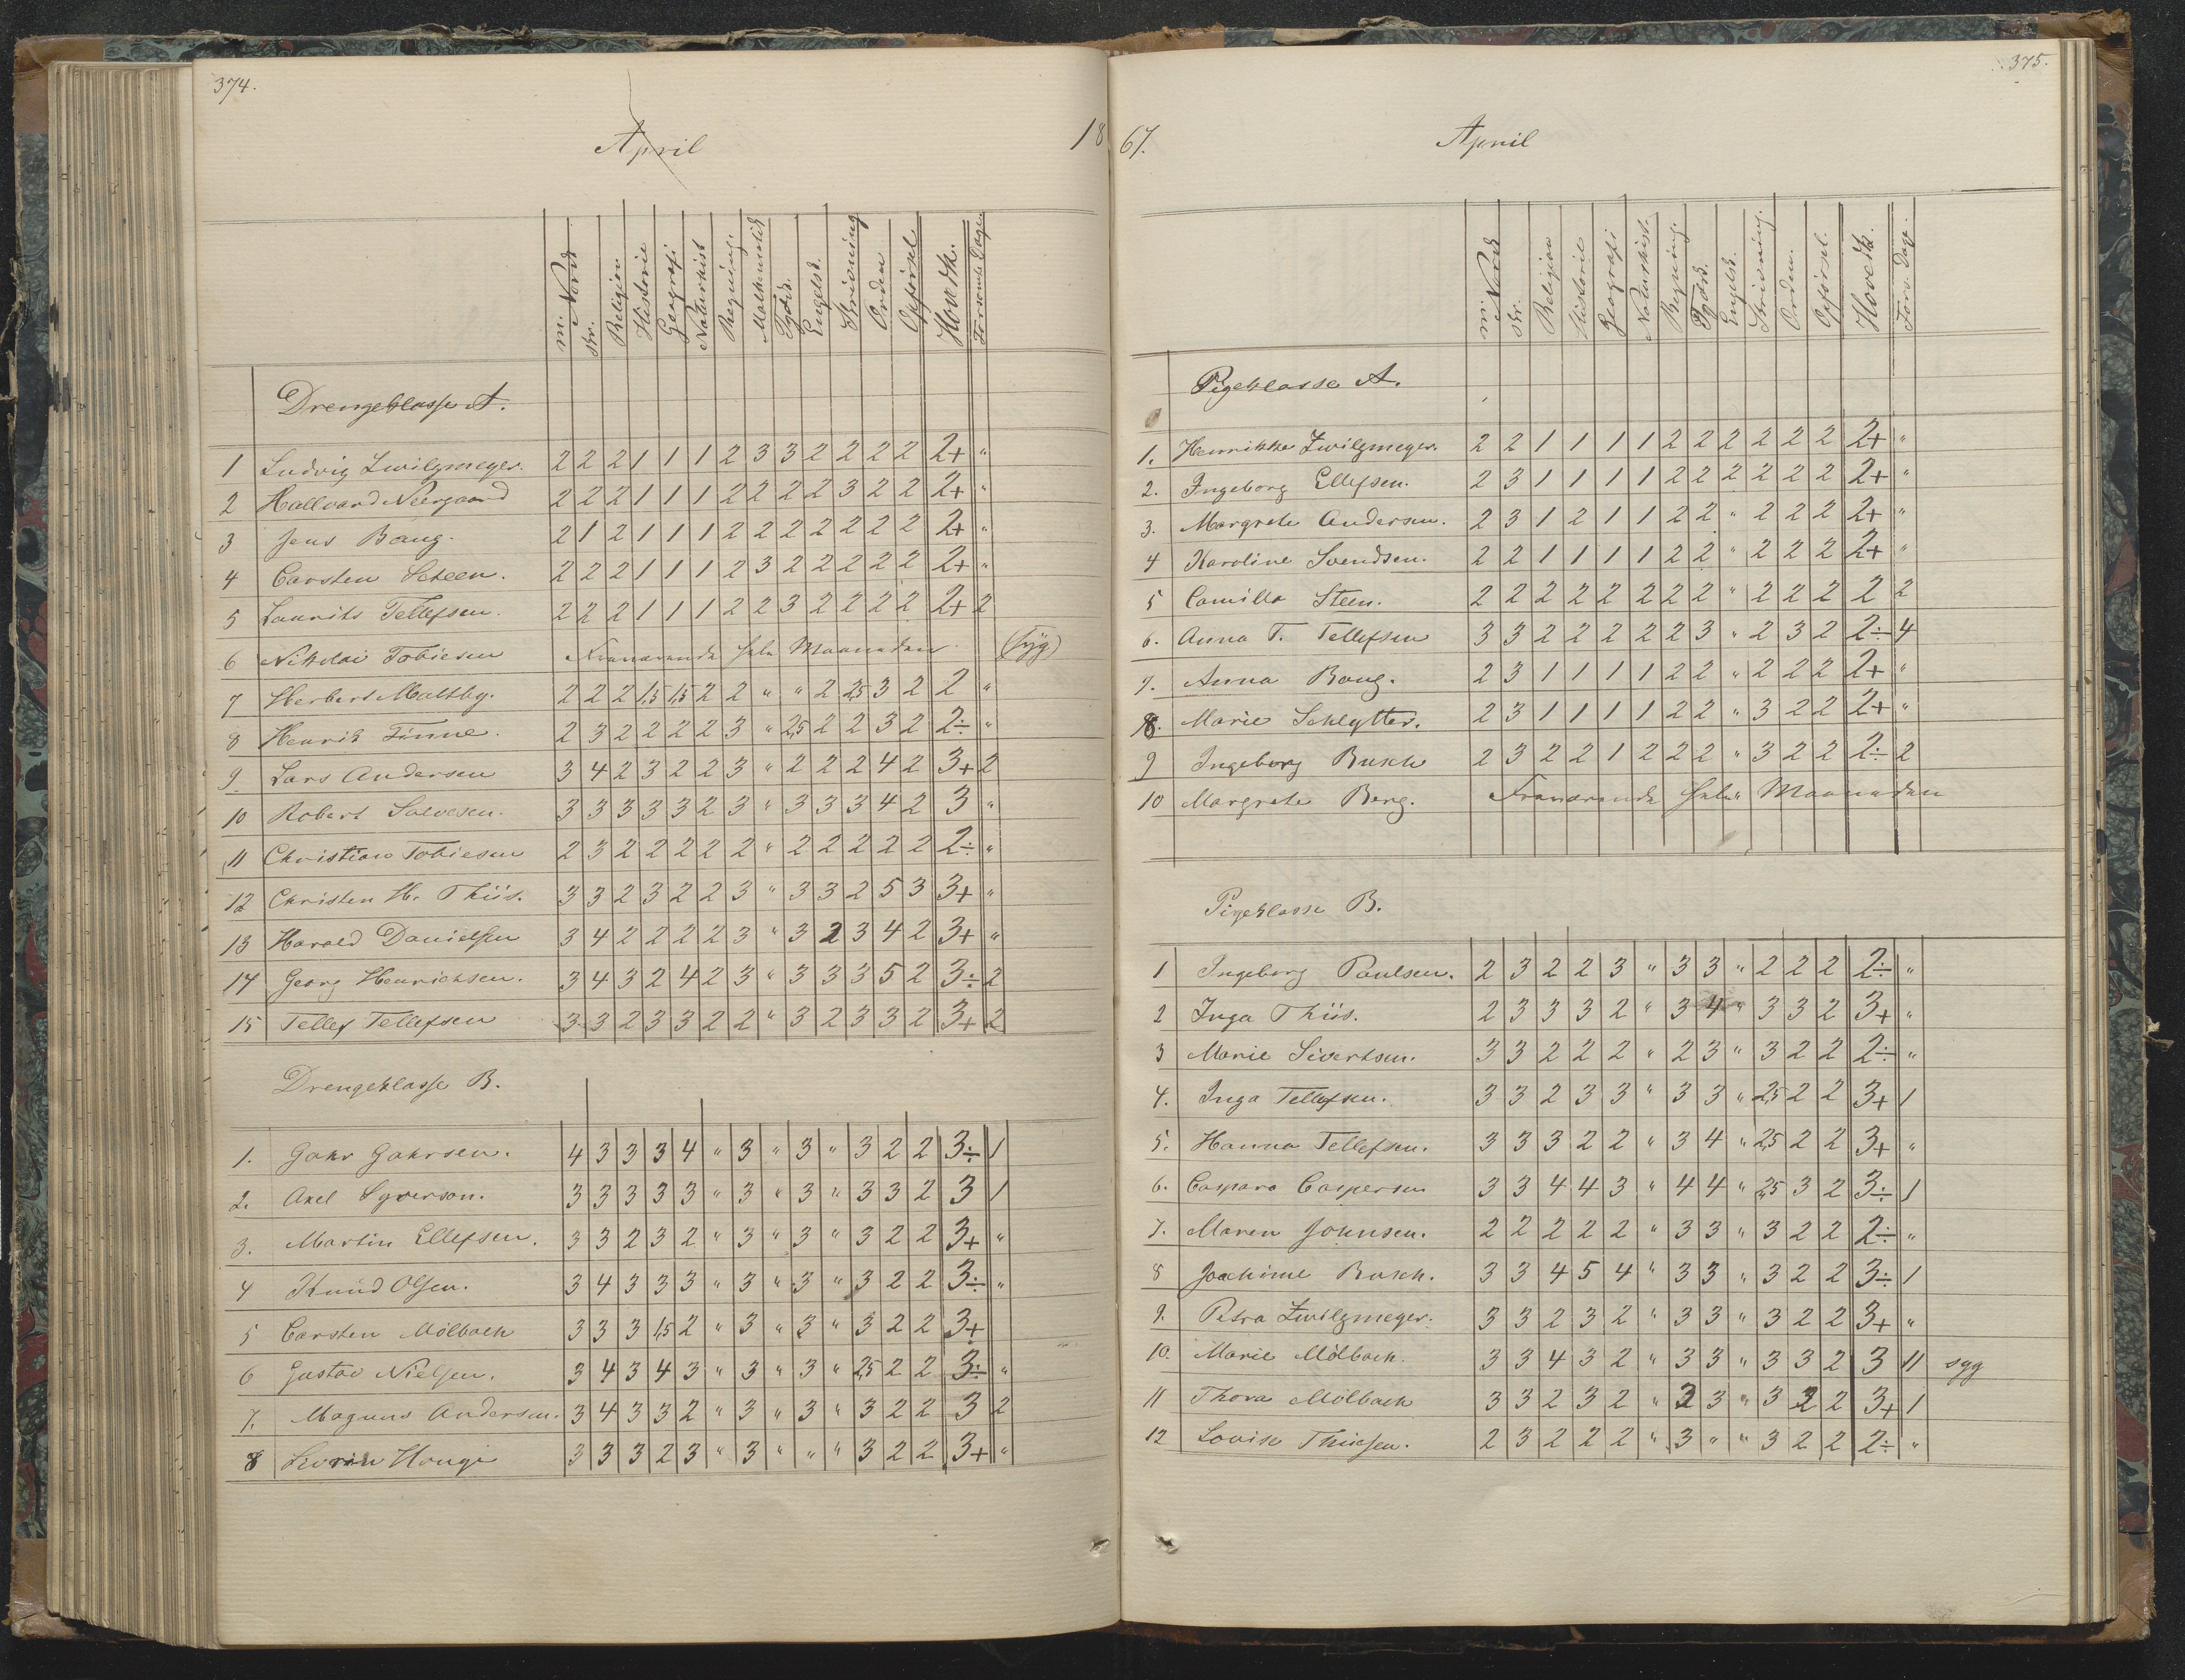 374.
April
18
m. Norsk
skr.
Religion
Historie
Geografi
Naturhist
Regning.
Mathematik
Tydsk.
Engelsk.
Skrivning
Orden
Opførsel
Hovedk.
Forsømte Dage
Drengeklasse A.
1 Ludvig Zwilgmeyer. 2 2 2 1 1 1 2 3 3 2 2 2 2 2+ "
2 Hallvard Neergaard 2 2 2 1 1 1 2 2 2 2 3 2 2 2+ "
3 Jens Bang. 2 1 2 1 1 1 2 2 2 2 2 2 2 2+ "
4 Carsten Steen. 2 2 2 1 1 1 2 3 2 2 2 2 2 2+ "
5 Laurits Tellefsen. 2 2 2 1 1 1 2 2 3 2 2 2 2 2+ 2
6 Nikolai Tobiesen Fraværende hele Maaneden. (syg)
7 Herbert Maltby. 2 2 2 1,5 1,5 2 2 " " 2 2,5 3 2 2 "
8 Henrik Finne. 2 3 2 2 2 2 3 " 2,5 2 2 3 2 2÷ "
9. Lars Andersen 3 4 2 3 2 2 3 " 2 2 2 4 2 3+ 2
10 Robert Salvesen. 3 3 3 3 3 2 3 " 3 3 3 4 2 3 "
11 Christian Tobiesen 2 3 2 2 2 2 2 " 2 2 2 2 2 2÷ "
12 Christen H. Thiis. 3 3 2 3 2 2 3 " 3 3 2 5 3 3+ "
13 Harald Danielsen 3 4 2 2 2 2 3 " 3 2 3 4 2 3+ "
14 Georg Henrichsen. 3 4 3 2 4 2 3 " 3 3 3 5 2 3÷ 2
15 Tellef Tellefsen 3 3 2 3 3 2 2 " 3 2 3 3 2 3+ 2
Drengeklasse B.
1. Jahr Jahrsen. 4 3 3 3 4 " 3 " 3 " 3 2 2 3÷ 1
2. Axel Syverson. 3 3 3 3 3 " 3 " 3 " 3 3 2 3 1
3. Martin Ellefsen. 3 3 2 3 2 " 3 " 3 " 3 2 2 3+ "
4 Knud Olsen. 3 4 3 3 3 " 3 " 3 " 3 2 2 3÷ "
5 Carsten Mölbach 3 3 3 1,5 2 " 3 " 3 " 3 2 2 3+
6 Gustav Nielsen. 3 4 3 4 3 " 3 " 3 " 2,5 2 2 3÷ "
7. Magnus Andersen. 3 4 3 3 2 " 3 " 3 " 3 2 2 3 2
8 3 3 3 2 3 " 3 " " " 3 2 2 3+ "
375.
67.
April
m. Norsk
skr.
Religion
Historie
Geografi
Naturhist.
Regning.
Tydsk.
Engelsk.
Skrivning.
Orden.
Opførsel.
Hovedk.
Fors. Dage.
Pigeklasse A.
1. Henrikke Zwilgmeyer. 2 2 1 1 1 1 2 2 2 2 2 2 2+ "
2. Ingeborg Ellefsen. 2 3 1 1 1 1 2 2 2 2 2 2 2+ "
3. Margrete Andersen. 2 3 1 2 1 1 2 2 " 2 2 2 2+ "
4 Karoline Svendsen. 2 2 1 1 1 1 2 2 " 2 2 2 2+ "
5 Camilla Steen. 2 2 2 2 2 2 2 2 " 2 2 2 2 2
6. Anna T. Tellefsen 3 3 2 2 2 2 2 3 " 2 3 2 2÷ 4
7. Anna Bang. 2 3 1 1 1 1 2 2 " 2 2 2 2+ "
8. Marie Schlytter. 2 3 1 1 1 1 2 2 " 3 2 2 2+ "
9 Ingeborg Busch 2 3 2 2 1 2 2 2 " 3 2 2 2÷ 2
10 Margrete Berg. Fraværende hele Maaneden
Pigeklasse B.
1 Ingeborg Paulsen. 2 3 2 2 3 " 3 3 " 2 2 2 2÷ "
2 Inga Thiis. 2 3 3 3 2 " 3 4 " 3 3 2 3+ "
3 Marie Sivertsen. 3 3 2 2 2 " 2 3 " 3 2 2 2÷ "
4. Inga Tellefsen. 3 3 2 3 3 " 3 3 " 2,5 2 2 3+ 1
5. Hanna Tellefsen. 3 3 3 2 2 " 3 4 " 2,5 2 2 3+ "
6. Caspara Caspersen 3 3 4 4 3 " 4 4 " 2,5 3 2 3÷ 1
7. Maren Johnsen. 2 2 2 2 2 " 3 3 " 3 2 2 2÷ "
8 Joachime Busch. 3 3 4 5 4 " 3 3 " 3 2 2 3÷ 1
9. Petra Zwilgmeyer. 3 3 2 3 2 " 3 3 " 3 2 2 3+ "
10. Marie Mölbach. 3 3 4 3 2 " 3 3 " 3 3 2 3 11 syg
11 Thora Mölbach 3 3 2 3 2 " 3 3 " 3 2 2 3+ 1
12 Lovise Thiesen. 2 3 2 2 2 " 3 " " 3 2 2 2÷ "